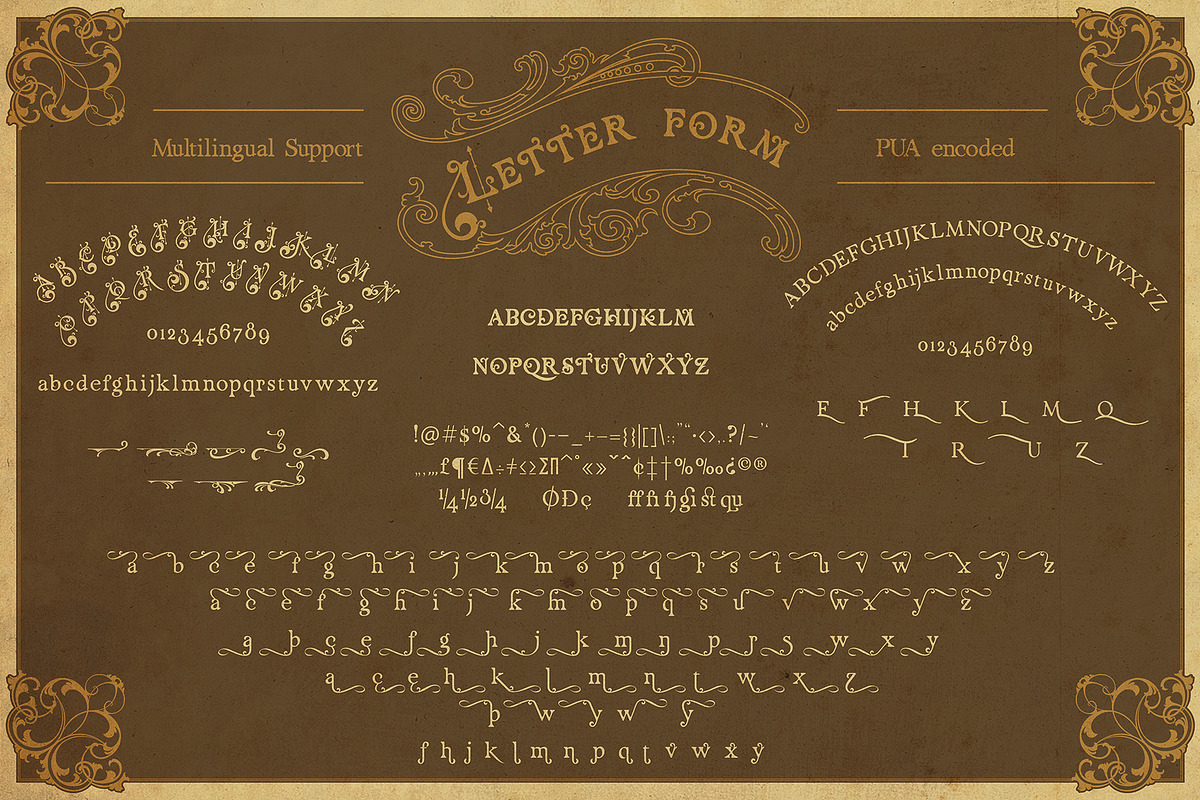 LETTER FORM
Multilingual Support
PUA encoded
ABCDEFGHIJKLMN
OPQRSTUVWXYZ
0123456789
abcdefghijklmnopqrstuvwxyz
ABCDEFGHIJKLM
NOPQRSTUVWXYZ
!@#$%^&*()-–_+−={}|[]\:;"“‘·<>,.?/~"‘
„,…£¶€Δ÷≠≤≥Σ∏^˚«»ˇˆ¢‡†%‰¿©®
¼½¾ ØÐç ff fi fj gi st qu
ABCDEFGHIJKLMNOPQRSTUVWXYZ
abcdefghijklmnopqrstuvwxyz
0123456789
E F H K L M Q
T R U Z
a b c e f g h i j k m o p q r s t u v w x y z
a c e f g h i j k m o p q s u v w x y z
a b c e f g h j k m n p r s w x y
a c e h k l m n t w x z
p w y w y
f h j k l m n p q t v w x y